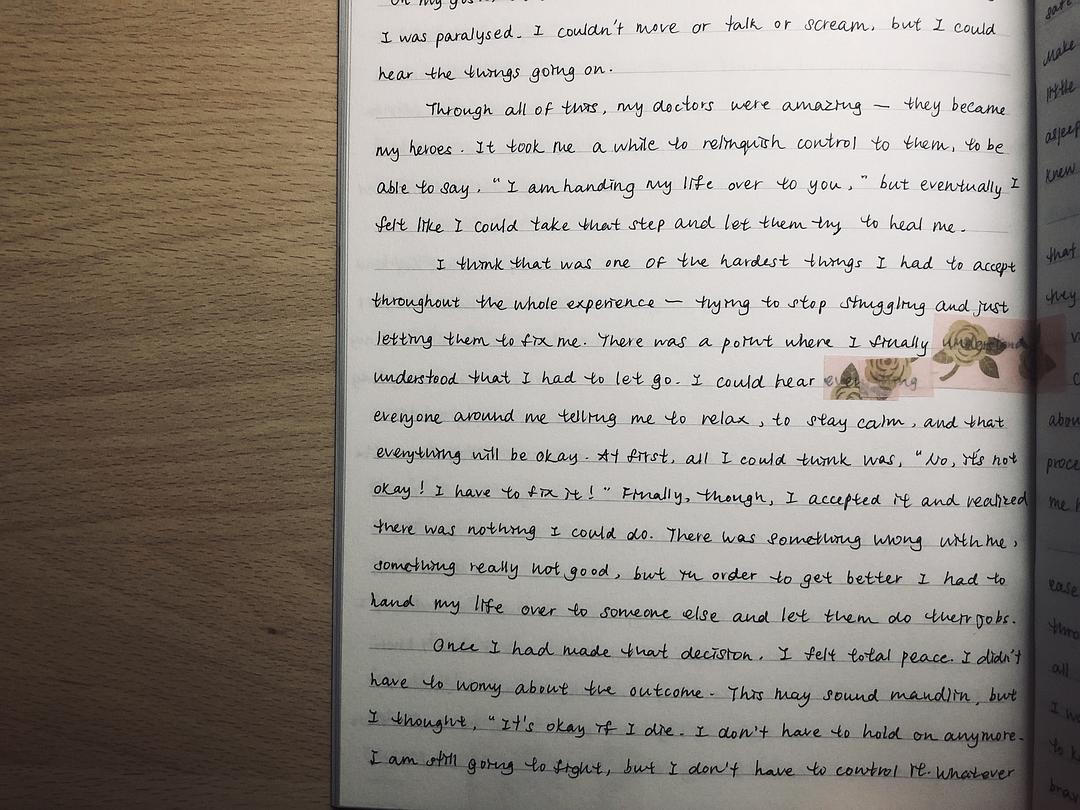 I was paralysed. I couldn't move or talk or scream, but I could
hear the things going on.
Through all of this, my doctors were amazing — they became
my heroes. It took me a while to relinquish control to them, to be
able to say, "I am handing my life over to you," but eventually I
felt like I could take that step and let them try to heal me.
I think that was one of the hardest things I had to accept
throughout the whole experience — trying to stop struggling and just
letting them to fix me. There was a point where I finally understand
understood that I had to let go. I could hear
everyone around me telling me to relax, to stay calm, and that
everything will be okay. At first, all I could think was, "No, it's not
okay! I have to fix it!" Finally, though, I accepted it and realized
there was nothing I could do. There was something wrong with me,
something really not good, but in order to get better I had to
hand my life over to someone else and let them do their jobs.
Once I had made that decision, I felt total peace. I didn't
have to worry about the outcome. This may sound mandlin, but
I thought, "It's okay if I die. I don't have to hold on anymore.
I am still going to fight, but I don't have to control it. Whatever
little
asleep
knew
that
they
proce
me h
ease
all